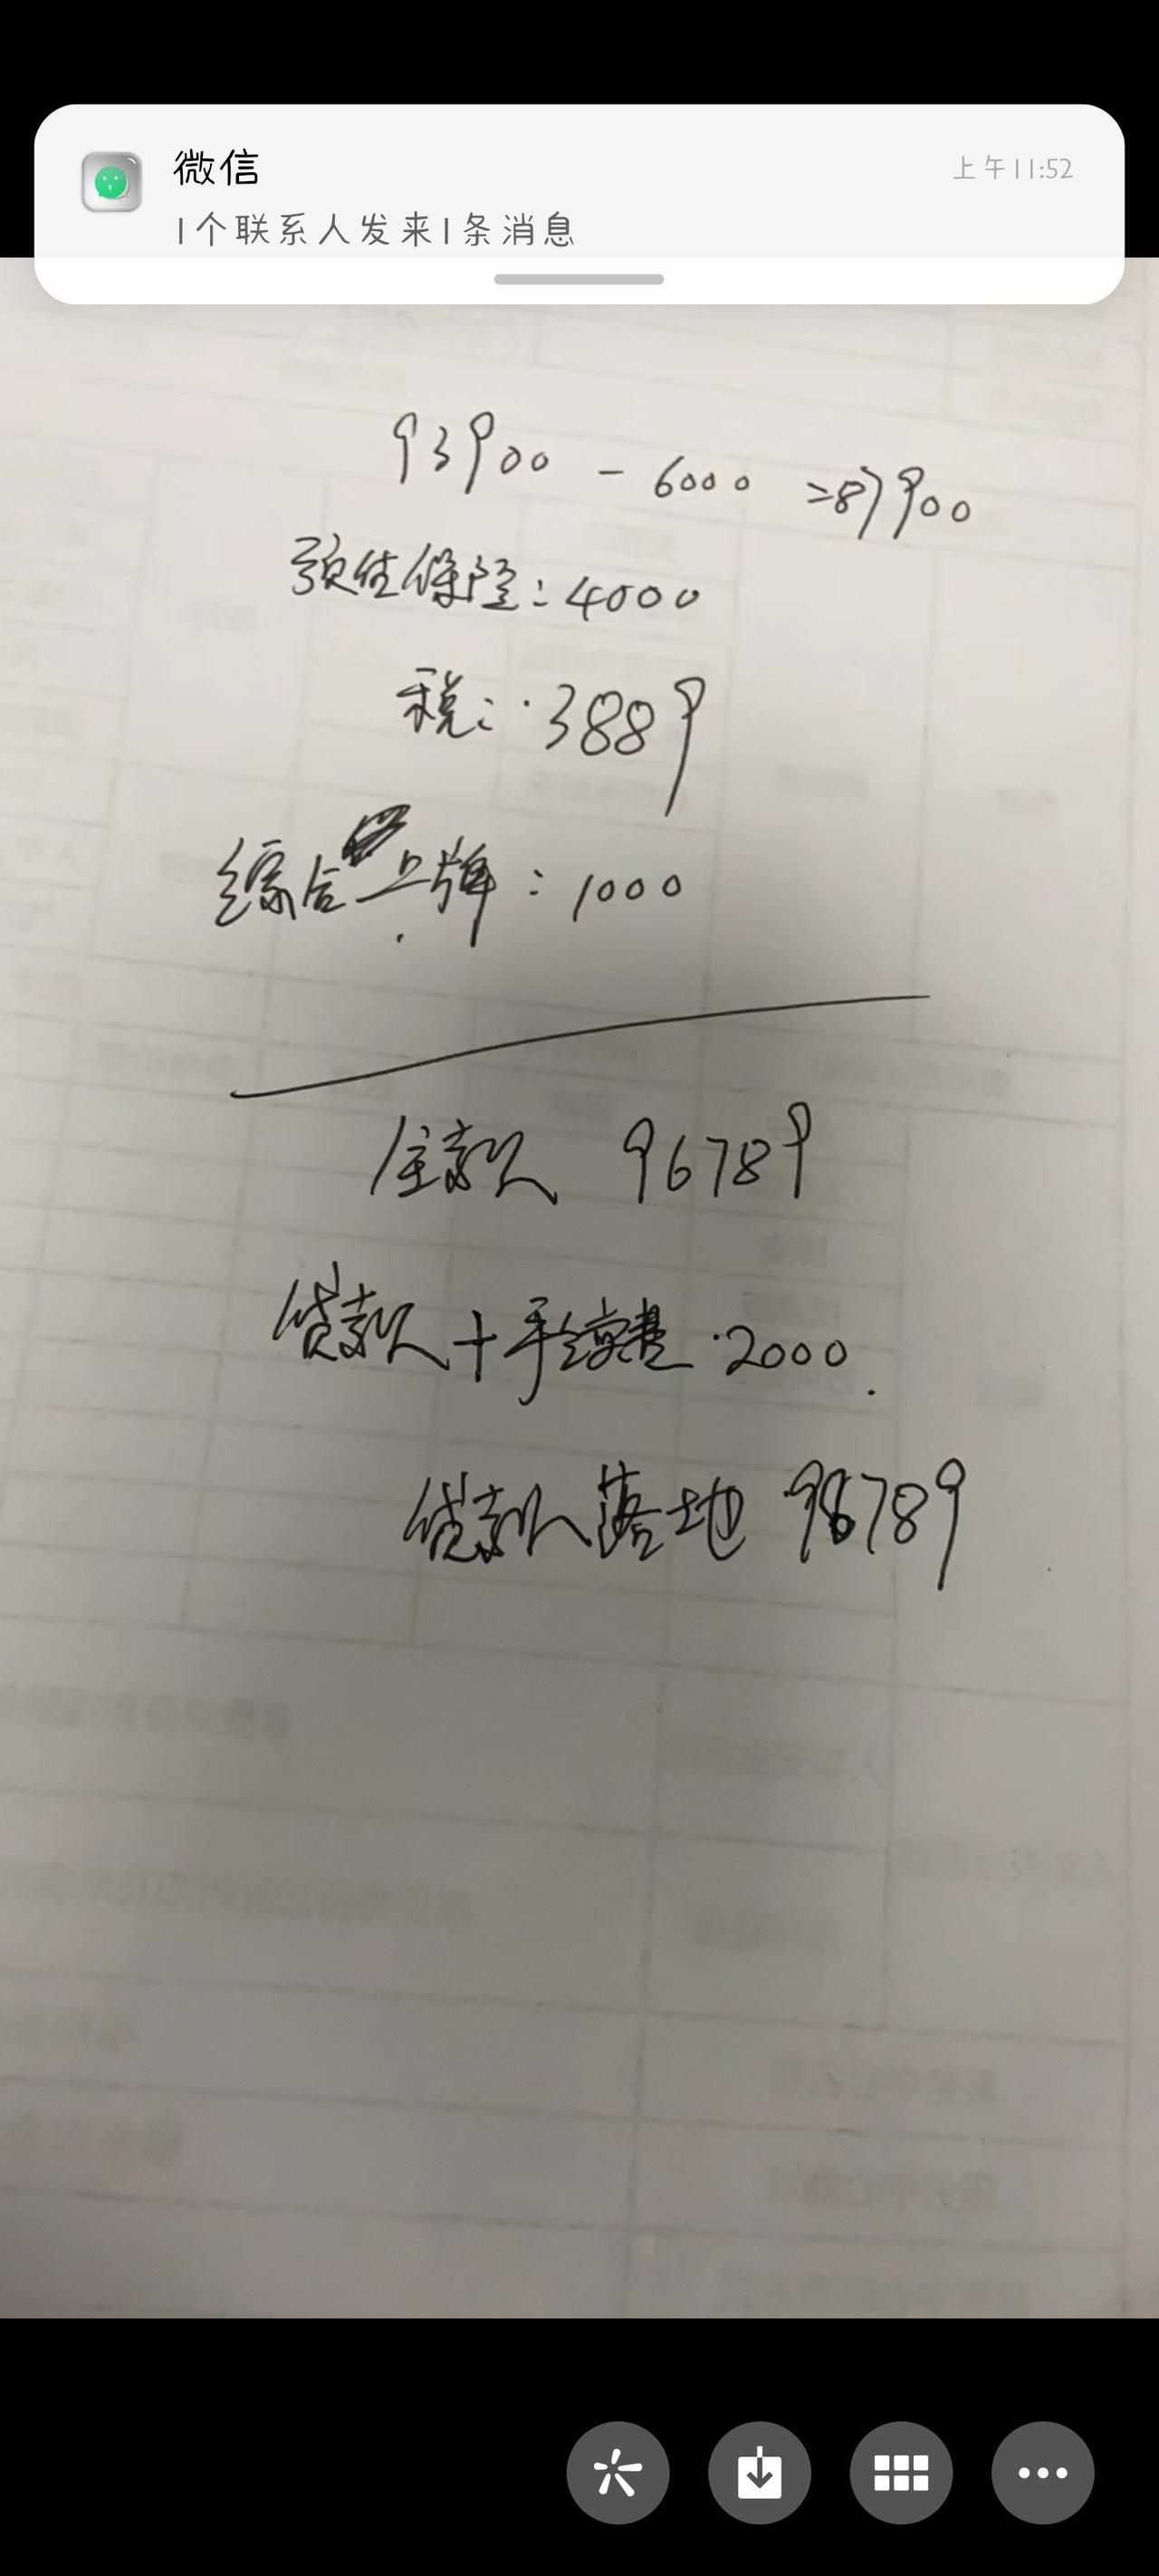 微信
上午11:52
1个联系人发来1条消息
93900 - 6000 =87900
预估保险:4000
税:3889
综合上牌:1000
全款 96789
贷款+手续费 2000
贷款落地 98789